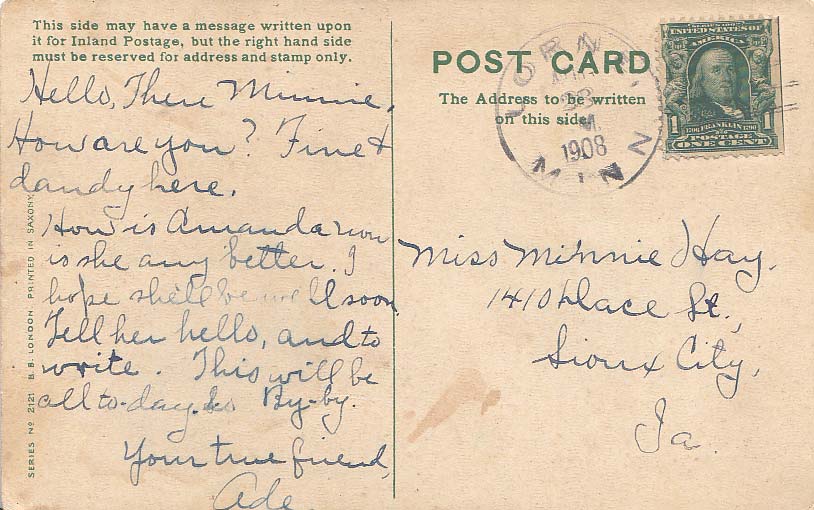 This side may have a message written upon
it for Inland Postage, but the right hand side
must be reserved for address and stamp only.
Hello, There Minnie,
How are you? Fine &
dandy here.
How is Amanda now
is she any better. I
hope she'll be well soon
Tell her hello, and to
write. This will be
all to-day. so By-by.
Your true friend,
Ade
SERIES No 2121 B. B. LONDON PRINTED IN SAXONY
POST CARD
The Address to be written
on this side.
23
M
1908
MINN
SERIES 1902
UNITED STATES OF
AMERICA
1706 FRANKLIN 1790
1 POSTAGE
ONE CENT
Miss Minnie Hay,
1410 Place St.,
Sioux City,
Ia.